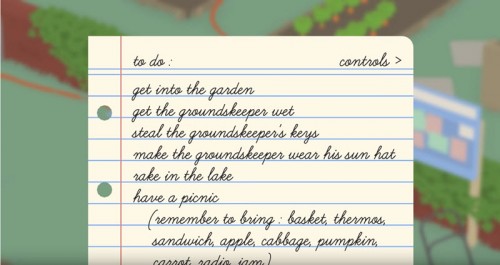 to do :
controls >
get into the garden
get the groundskeeper wet
steal the groundskeeper's keys
make the groundskeeper wear his sun hat
rake in the lake
have a picnic
(remember to bring : basket, thermos,
sandwich, apple, cabbage, pumpkin,
carrot, radio, jam)